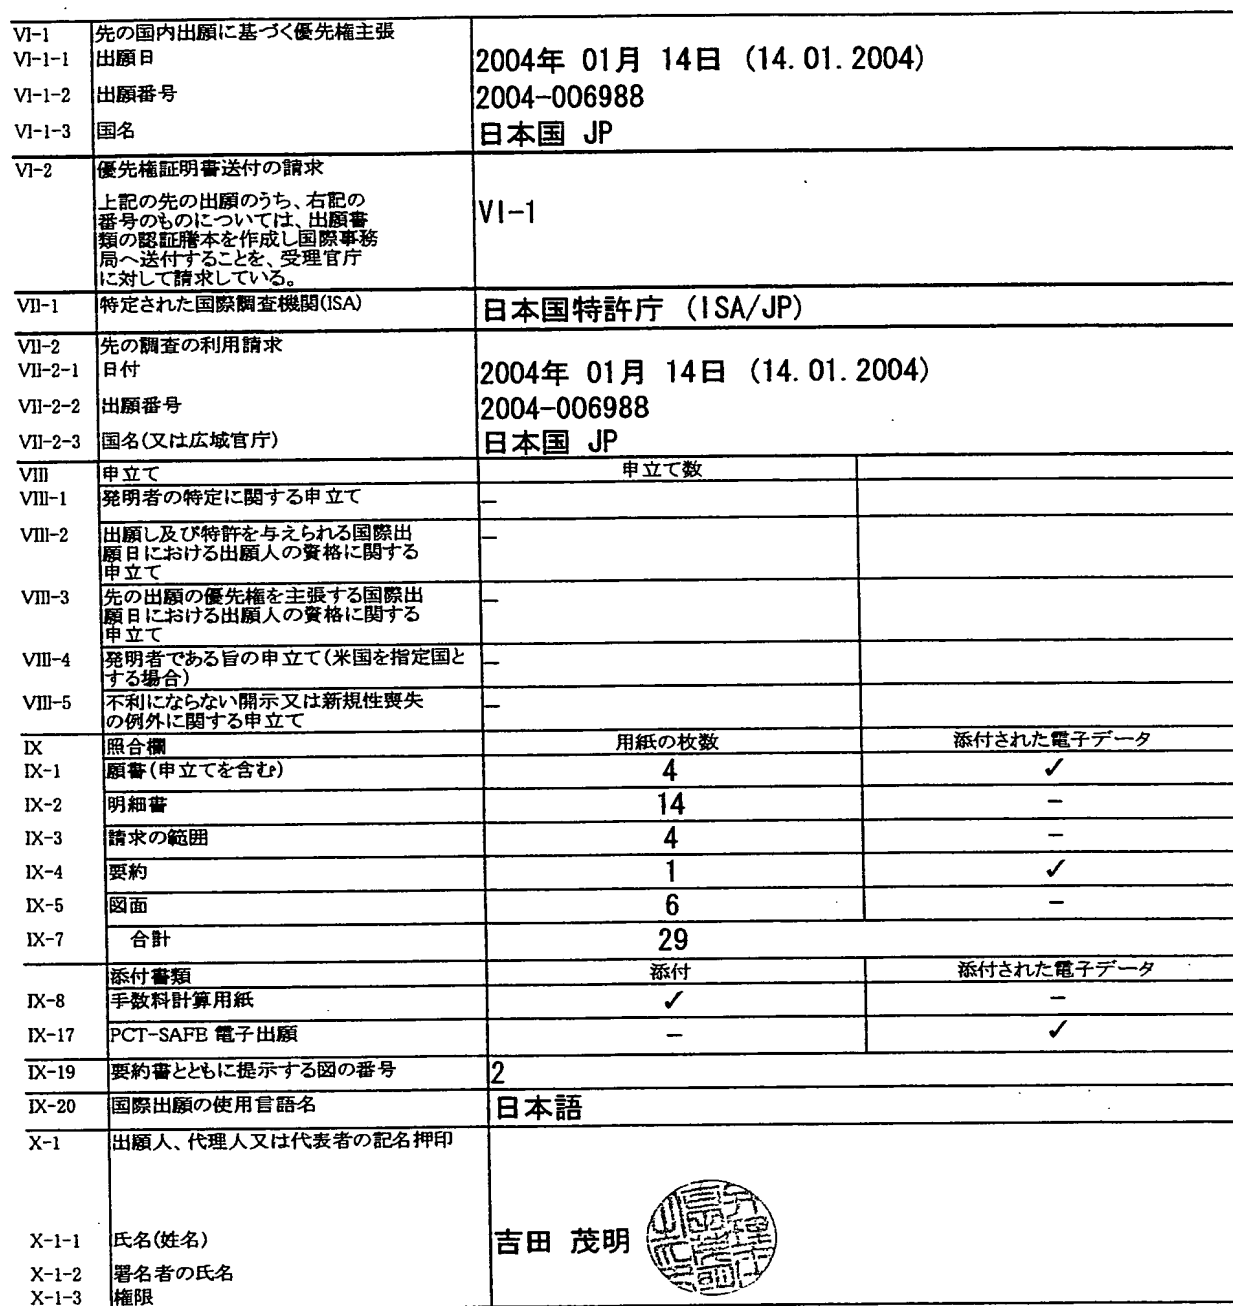 VI-1 先の国内出願に基づく優先権主張
VI-1-1 出願日 2004年 01月 14日 (14.01.2004)
VI-1-2 出願番号 2004-006988
VI-1-3 国名 日本国 JP
VI-2 優先権証明書送付の請求
上記の先の出願のうち、右記の
番号のものについては、出願書
類の認証謄本を作成し国際事務
局へ送付することを、受理官庁
に対して請求している。
VI-1
VII-1 特定された国際調査機関(ISA) 日本国特許庁 (ISA/JP)
VII-2 先の調査の利用請求
VII-2-1 日付 2004年 01月 14日 (14.01.2004)
VII-2-2 出願番号 2004-006988
VII-2-3 国名(又は広域官庁) 日本国 JP
VIII 申立て 申立て数
VIII-1 発明者の特定に関する申立て –
VIII-2 出願し及び特許を与えられる国際出 –
願日における出願人の資格に関する
申立て
VIII-3 先の出願の優先権を主張する国際出 –
願日における出願人の資格に関する
申立て
VIII-4 発明者である旨の申立て(米国を指定国と –
する場合)
VIII-5 不利にならない開示又は新規性喪失 –
の例外に関する申立て
IX 照合欄 用紙の枚数 添付された電子データ
IX-1 願書(申立てを含む) 4 ✓
IX-2 明細書 14 –
IX-3 請求の範囲 4 –
IX-4 要約 1 ✓
IX-5 図面 6 –
IX-7 合計 29
添付書類 添付 添付された電子データ
IX-8 手数料計算用紙 ✓ –
IX-17 PCT-SAFE 電子出願 – ✓
IX-19 要約書とともに提示する図の番号 2
IX-20 国際出願の使用言語名 日本語
X-1 出願人、代理人又は代表者の記名押印
X-1-1 氏名(姓名) 吉田 茂明
X-1-2 署名者の氏名
X-1-3 権限